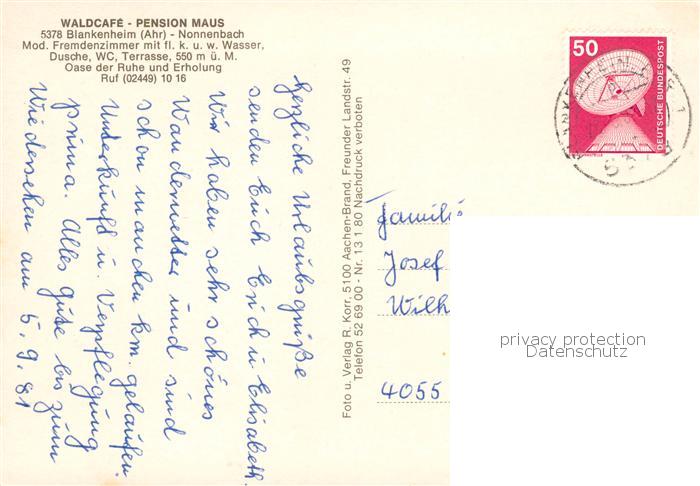 WALDCAFÉ - PENSION MAUS
5378 Blankenheim (Ahr) - Nonnenbach
Mod. Fremdenzimmer mit fl. k. u. w. Wasser,
Dusche, WC, Terrasse, 550 m ü. M.
Oase der Ruhe und Erholung
Ruf (02449) 10 16
herzliche Urlaubsgrüße
senden Euch Erich u Elisabeth
Wir haben sehr schönes
Wanderwetter und sind
schon manchen km. gelaufen.
Unterkunft u. Verpflegung
prima. Alles gute bis zum
Wiedersehen am 5. 9. 81
Foto u. Verlag R. Korr, 5100 Aachen-Brand, Freunder Landstr. 49
Telefon 52 69 00 - Nr. 13 1 80 Nachdruck verboten
50
DEUTSCHE BUNDESPOST
Famili
Josef
Wilh
4055
privacy protection
Datenschutz